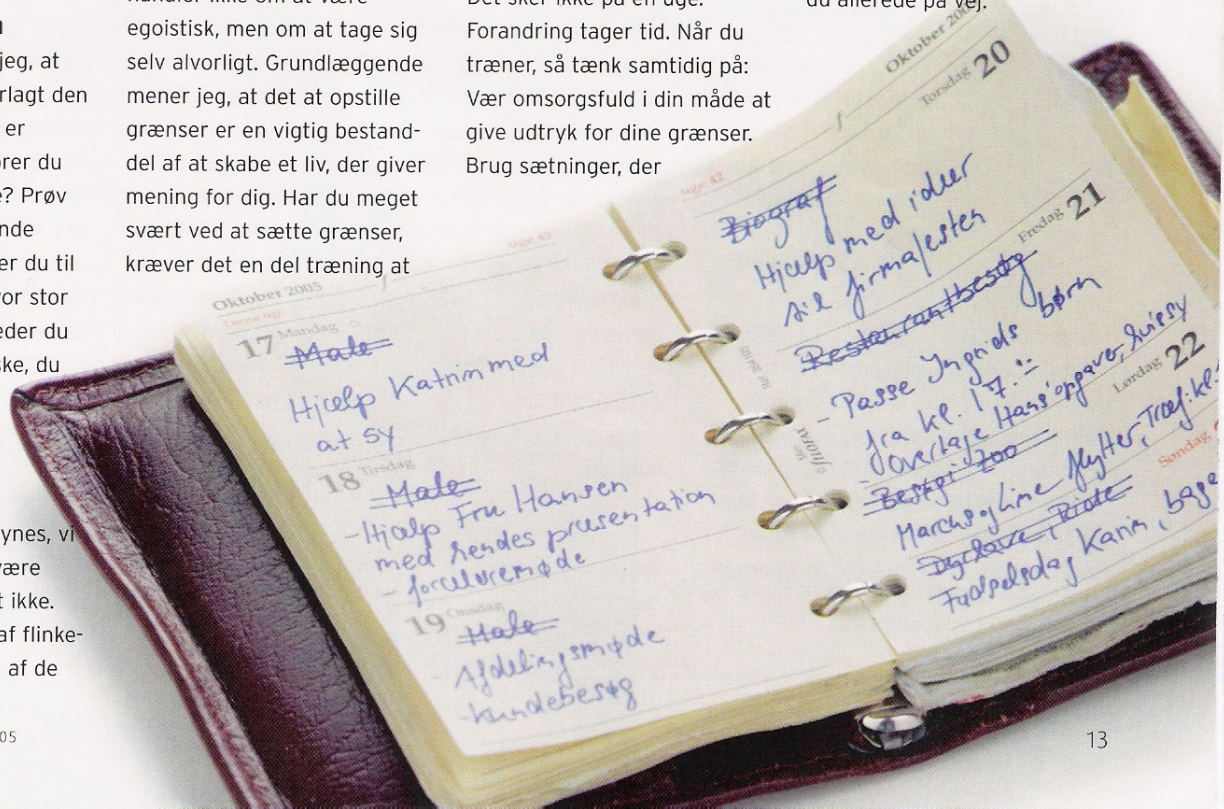 jeg, at
rlagt den
er
rer du
e? Prøv
nde
er du til
or stor
eder du
ske, du
ynes, vi
ære
t ikke.
af flinke-
af de
05
egoistisk, men om at tage sig
selv alvorligt. Grundlæggende
mener jeg, at det at opstille
grænser er en vigtig bestand-
del af at skabe et liv, der giver
mening for dig. Har du meget
svært ved at sætte grænser,
kræver det en del træning at
Det sker ikke på en uge.
Forandring tager tid. Når du
træner, så tænk samtidig på:
Vær omsorgsfuld i din måde at
give udtryk for dine grænser.
Brug sætninger, der
du allerede på vej.
uge 42
Oktober 2005
Denne uge
17 Mandag
Male
Hjælp Katrin med
at sy
18 Tirsdag
Male
- Hjælp Fru Hansen
med hendes præsentation
- forældremøde
19 Onsdag
Male
- Afdelingsmøde
- kundebesøg
Oktober 200
Torsdag 20
uge 42
Biograf
Hjælp med idéer
til firmafesten
Fredag 21
Restaurantbesøg
- Passe Ingrids børn
fra kl. 17.
- Overtage Hans' opgaver,
Lørdag 22
Besøg i Zoo
Marcus og Line flytter, Træf. kl.
Søndag
Dyrehave,
Fødselsdag Karin, bage
filofax
13